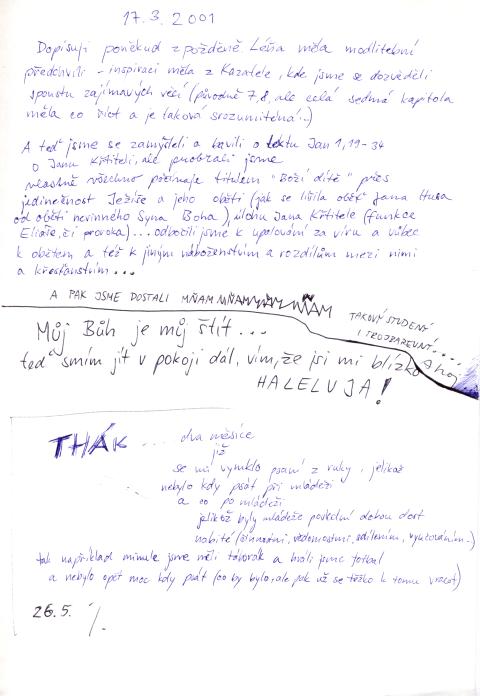 17.3.2001
Dopisuji poněkud zpožděně. Léňa měla modlitební
předchvíli - inspiraci měla z Kazatele, kde jsme se dozvěděli
spoustu zajímavých věcí (původně 7,8, ale celá sedmá kapitola
měla co říct a je taková srozumitelná.)
A teď jsme se zamýšleli a bavili o textu Jan 1,19-34
o Janu Křtiteli, ale probrali jsme
vlastně všechno počínaje titulem "Boží dítě" přes
jedinečnost Ježíše a jeho oběti (jak se lišila oběť Jana Husa
od oběti nevinného Syna Boha), úlohu Jana Křtitele (funkce
Eliáše, či proroka)... odbočili jsme k upalování za víru a vůbec
k obětem a též k jiným náboženstvím a rozdílům mezi nimi
a křesťanstvím...
A PAK JSME DOSTALI MŇAM MŇAM MŇAM
TAKOVÝ STUDENÝ
I TROJBAREVNÝ....
Můj Bůh je můj štít...
teď smím jít v pokoji dál, vím, že jsi mi blízko
Ahoj...
HALELUJA!
THÁK .... dva měsíce
již
se mi vymklo psaní z ruky i jelikož
nebylo kdy psát při mládeži
a co po mládeži
jelikož byly mládeže poslední dobou dost
nabité (činnostmi, vědomostmi, sdílením, vyučováním.)
tak například minule jsme měli táborák a hráli jsme fotbal
a nebylo opět moc kdy psát (co by bylo, ale jak už se těžko k tomu vracet)
26.5.